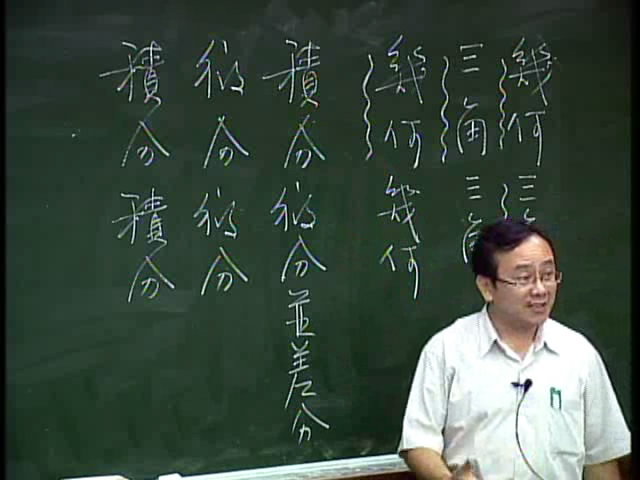 幾何三角
三角三角
幾何幾何
積分微分並差分
微分微分
積分積分